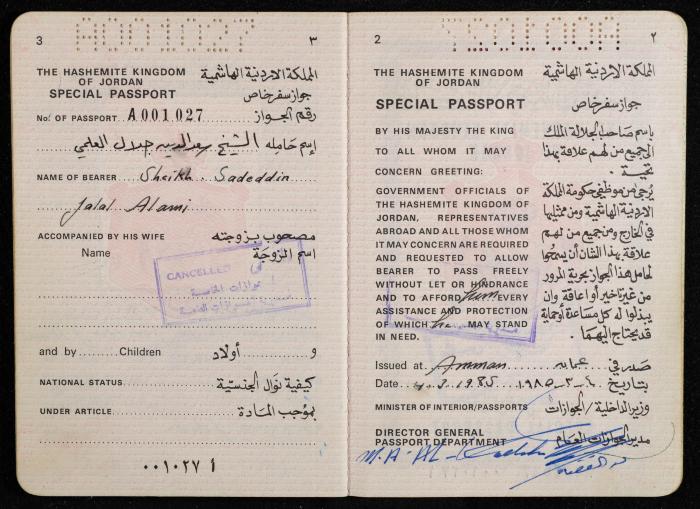 3
A001027
٣
THE HASHEMITE KINGDOM OF JORDAN
المملكة الاردنية الهاشمية
SPECIAL PASSPORT
جواز سفر خاص
No. OF PASSPORT A001027 رقم الجواز
إسم حامله الشيخ سعد الدين جلال العلمي
NAME OF BEARER Sheikh Sadeddin
Jalal Alami
ACCOMPANIED BY HIS WIFE مصحوب بزوجته
Name اسم الزوجة
CANCELLED
جوازات الخاصة
and by Children و أولاد
NATIONAL STATUS كيفية نوال الجنسية
UNDER ARTICLE بموجب المادة
٠٠١٠٢٧ أ
2
A001027
٢
THE HASHEMITE KINGDOM OF JORDAN
المملكة الاردنية الهاشمية
SPECIAL PASSPORT
جواز سفر خاص
BY HIS MAJESTY THE KING
TO ALL WHOM IT MAY
CONCERN GREETING:
GOVERNMENT OFFICIALS OF
THE HASHEMITE KINGDOM OF
JORDAN, REPRESENTATIVES
ABROAD AND ALL THOSE WHOM
IT MAY CONCERN ARE REQUIRED
AND REQUESTED TO ALLOW
BEARER TO PASS FREELY
WITHOUT LET OR HINDRANCE
AND TO AFFORD him EVERY
ASSISTANCE AND PROTECTION
OF WHICH he MAY STAND
IN NEED.
باسم صاحب الجلالة الملك
الى جميع من لهم علاقة بهذا
تحية.
يُرجى من موظفي حكومة المملكة
الاردنية الهاشمية ومن ممثليها
في الخارج ومن جميع من لهم
علاقة بهذا الشأن أن يسمحوا
لحامل هذا الجواز بحرية المرور
من غير تاخير أو اعاقة وان
يبذلوا له كل مساعدة أو حماية
قد يحتاج اليهما.
Issued at Amman عمان صدر في
Date 4.3.1985 ١٩٨٥-٣-٤ بتاريخ
MINISTER OF INTERIOR/PASSPORTS وزير الداخلية/الجوازات
DIRECTOR GENERAL
PASSPORT DEPARTMENT مدير الجوازات العام